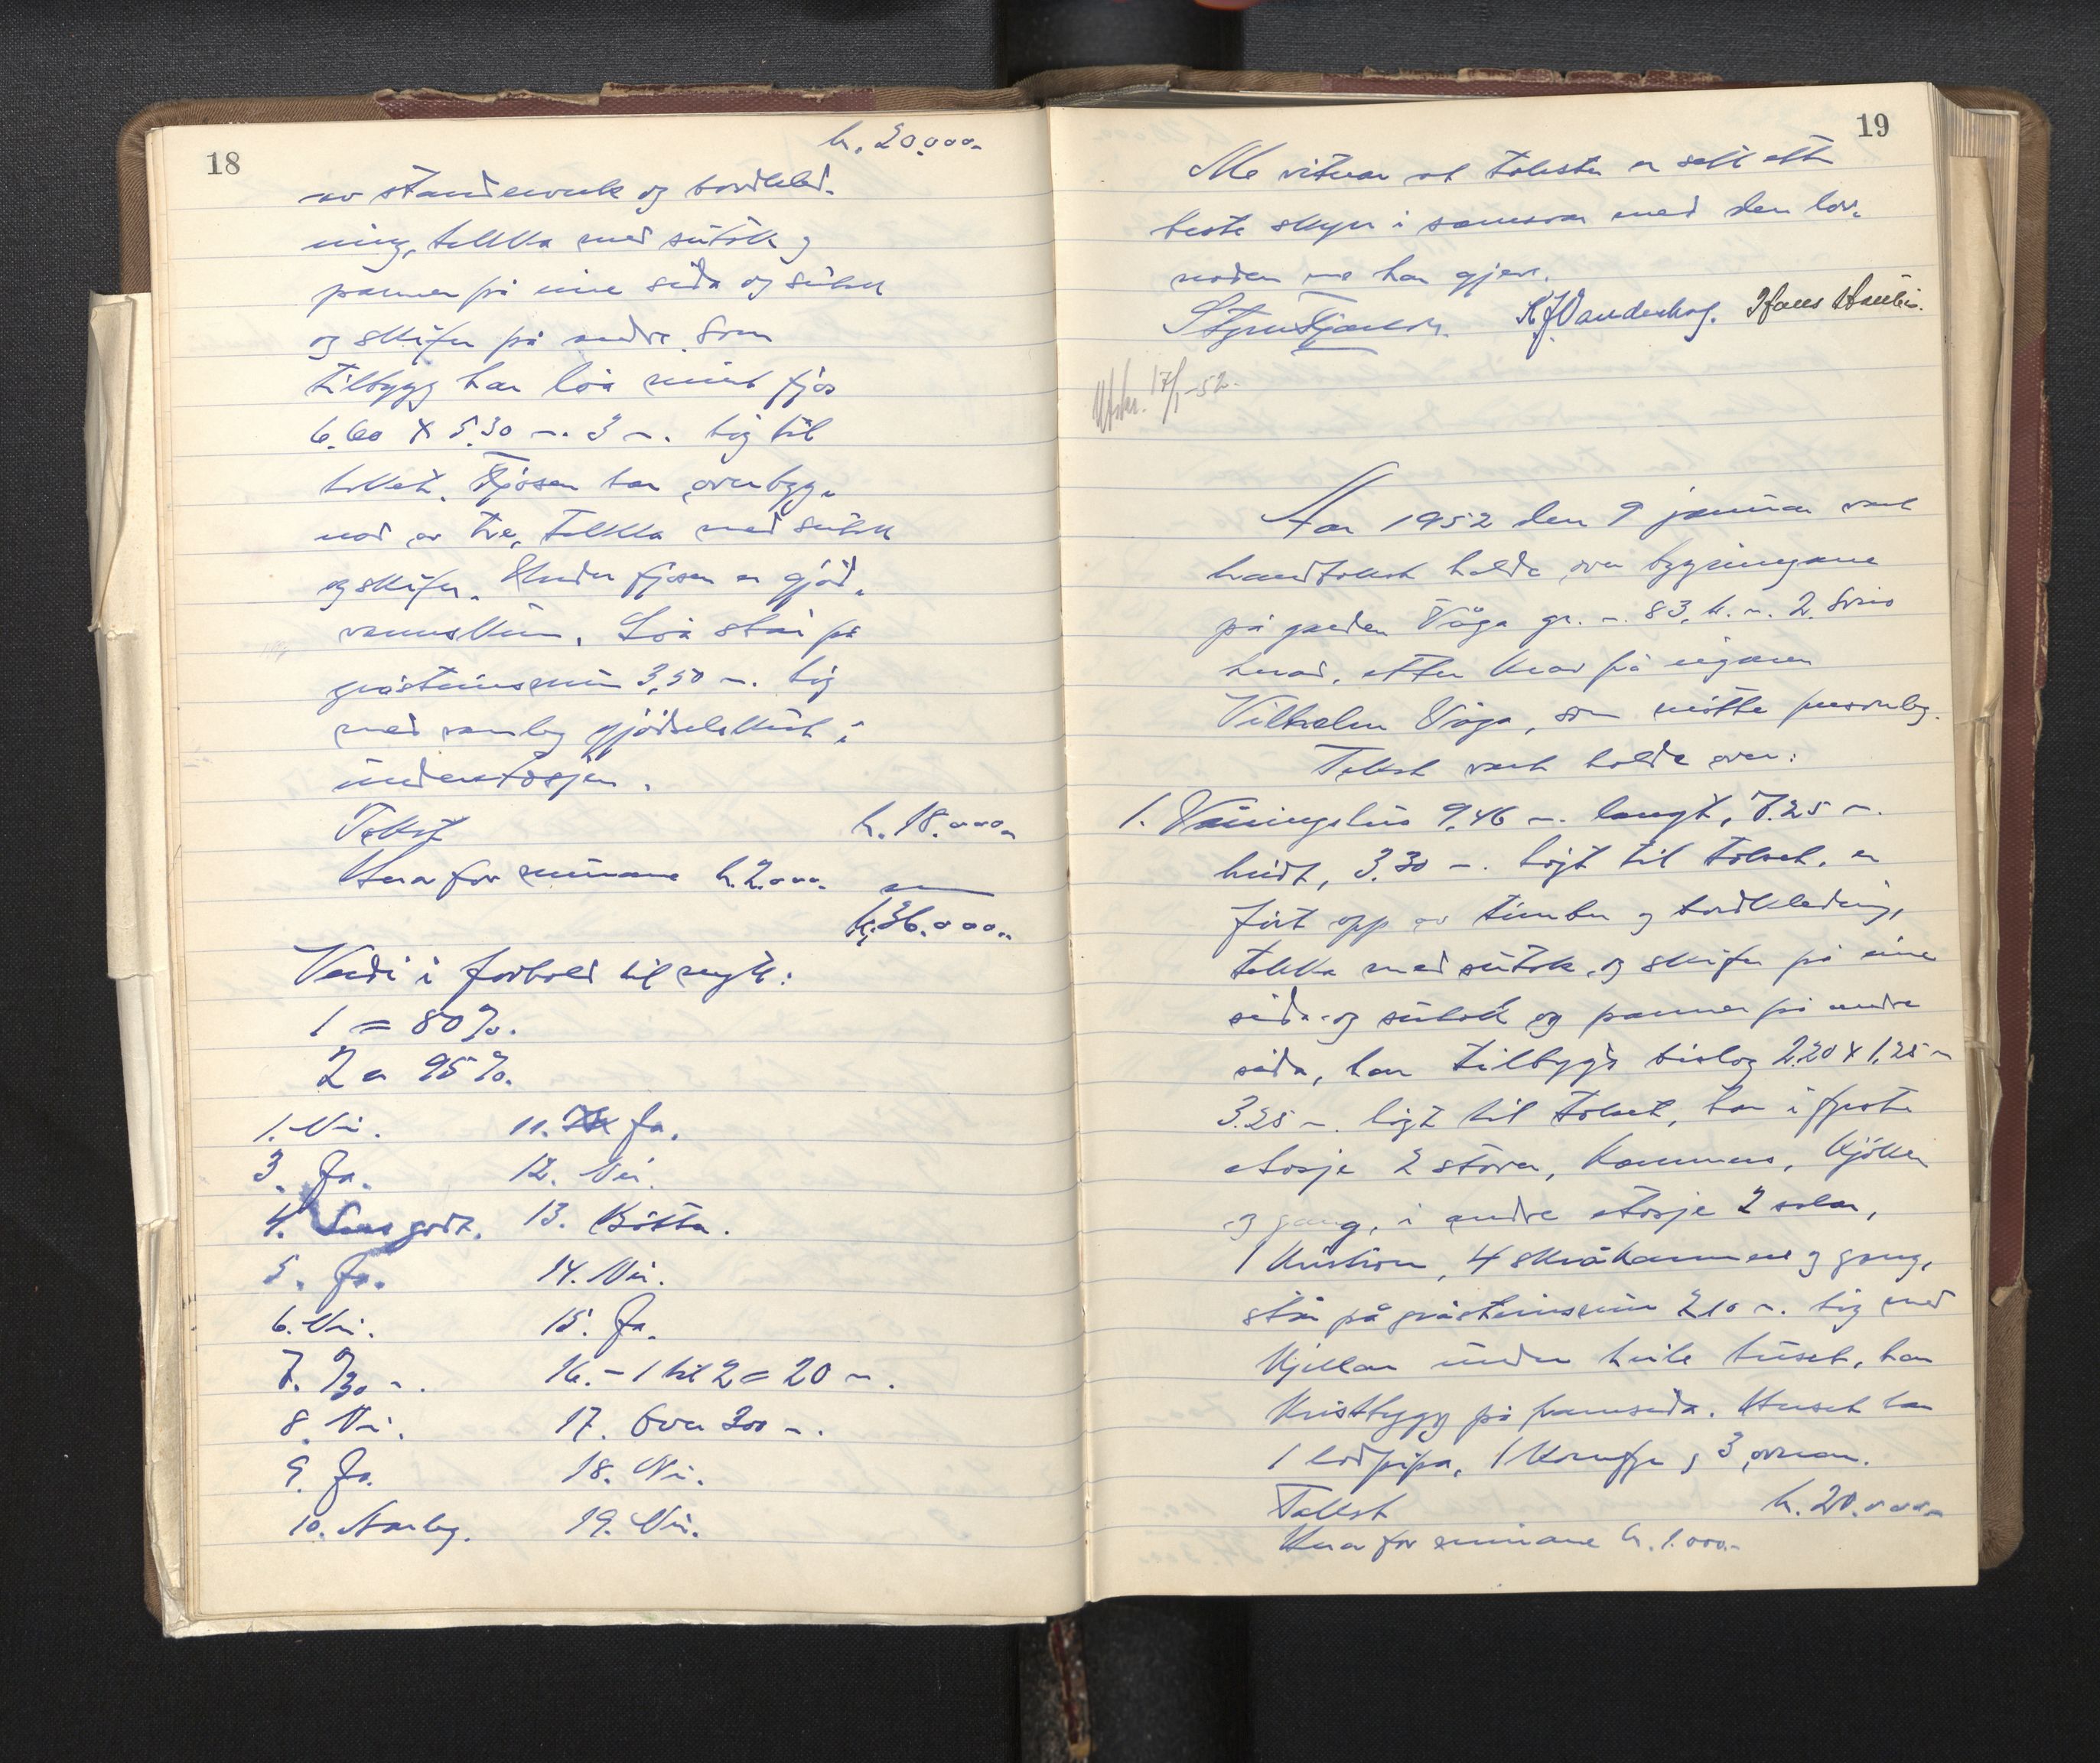 18
kr. 20.000.-
av standerverk og bordkled-
ning, tekkta med sutak og
panner på eine sida og sutak
og skifer på andre. Som
tilbygg har löa murt fjos
6.60 x 5.30 m. 3 m. høg til
taket. Fjosen har overbygg-
nad av tre, tekkta med sutak
og skifer. Under fjosen er gjöd-
Löa står på
gråsteinsmur 3,50 m. høg
med vanleg i
underetasjen.
Takst kr. 18.000.-
Herav for murane kr. 2.000.-
kr. 36.000.-
Verdi i forhold til nytt:
1 = 80%.
2 = 95%.
1. Nei. 11. Ja.
3. Ja. 12. Nei.
4. godt. 13. Bötta.
5. Ja. 14. Nei.
6. Nei. 15. Ja.
7. 9/30 m. 16. - 1 til 2 = 20 m.
8. Nei. 17. Over 300 m.
9. Ja. 18. Nei.
10. Varleg. 19. Nei.
19
Me vitnar at taksten er sett etter
beste skyn i samsvar med den lov-
naden me har gjeve.
K J Vanderhog. Hans
Utskr. 17/1-52.
Aar 1952 den 9 januar vart
branntakst halde over bygningane
på garden Våga gr. n. 83, br. n. 2.
herad, etter krav frå eigaren
Vilhelm Våga, som møtte personleg.
Takst vart halde over:
1. Våningshus 9,46 m. langt, 7.25 m.
breidt, 3.30 m. högt til taket, er
fört opp av timber og bordkledning,
tekka med sutak og skifer på eine
sida og sutak og panner på andre
sida, har tilbygd bislag 2.20 x 1,25 m
3.25 m. högt til taket, har i fyrste
etasje 2 stover, kammers, kjöken
og gang, i andre etasje 2 salar,
1 , 4 skråkammers og gang,
står på gråsteinsmur 2.10 m. høg med
kjellar under heile huset, har
kvistbygg på framsida. Huset har
1 lodpipa, 1 komfyr og 3 omnar.
Takst kr. 20.000.-
Herav for murane kr. 1.000.-